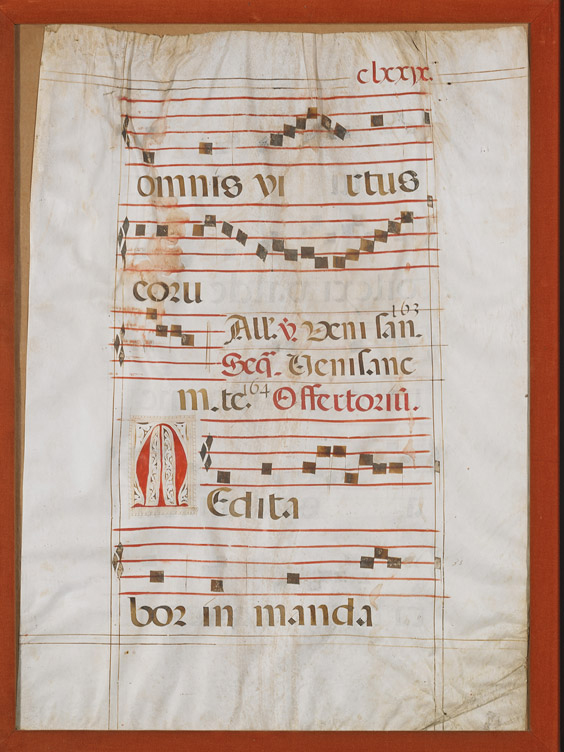 clxxix.
omnis virtus
coru
163
All'. v̄. Veni san.
Seq̄. Veni sanc
m. tc. 164 Offertoriū.
MEdita
bor in manda